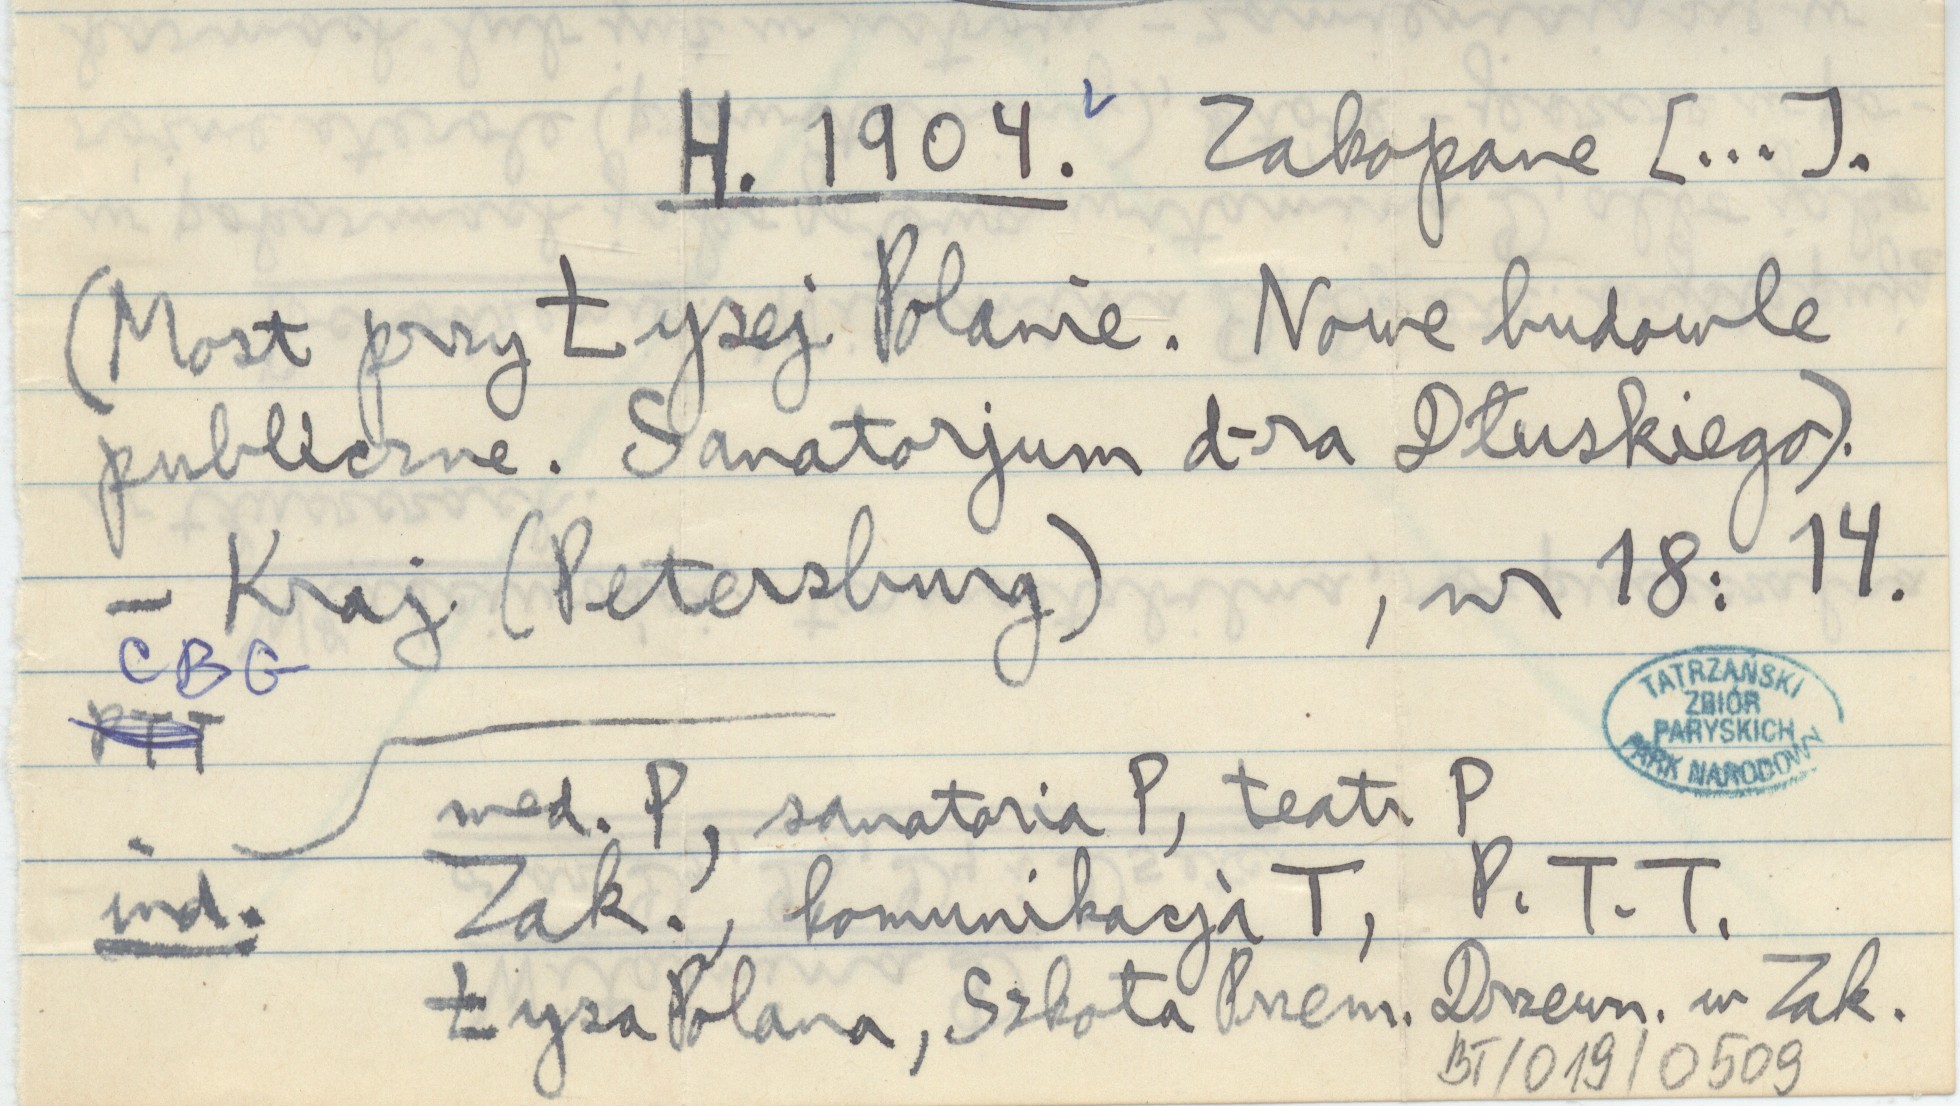 H. 1904. Zakopane [...].
(Most przy Łysej Polanie. Nowe budowle
publiczne. Sanatorjum d-ra Dłuskiego).
– Kraj (Petersburg) , nr 18: 14.
CBG
PTT
TATRZAŃSKI
ZBIÓR
PARYSKICH
PARK NARODOWY
med. P, sanatoria P, teatr P
ind. Zak., komunikacja T, P.T.T.
Łysa Polana, Szkoła Przem. Drzewn. w Zak.
BT/019/0509